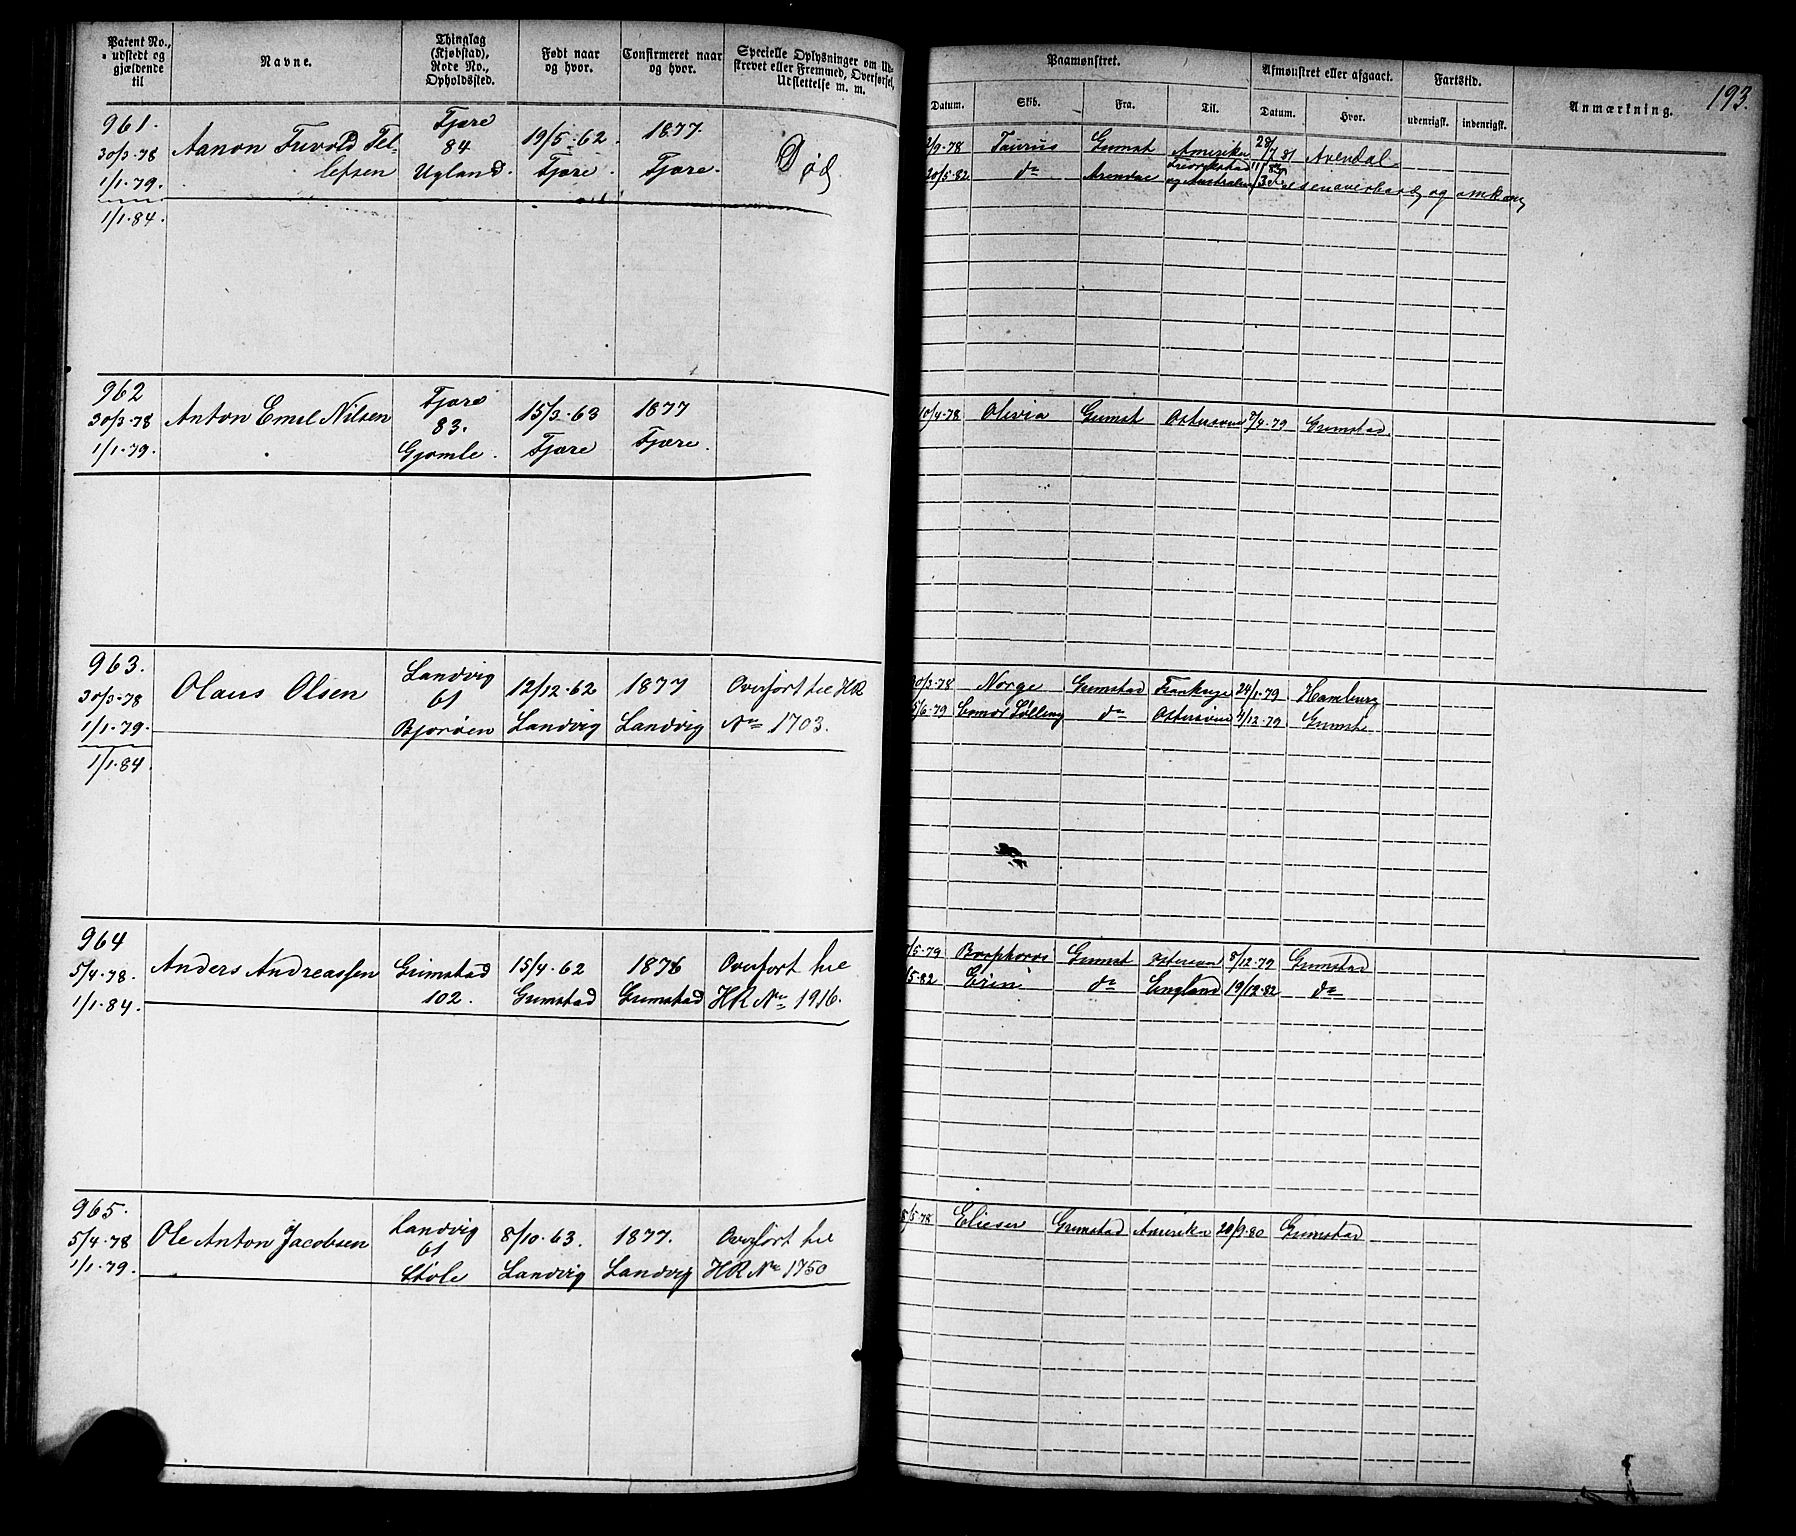 Patent No., udstedt og gjældende til
Navne.
Thinglag (Kjøbstad), Rode No., Opholdssted.
Født naar og hvor.
Confirmeret naar og hvor.
Specielle Oplysninger om Udskrevet eller Fremmed, Overførsel, Udslettelse m. m.
Paamønstret.
Afmønstret eller afgaaet.
Fartstid.
Anmærkning.
193.
Datum.
Skib.
Fra.
Til.
Datum.
Hvor.
udenrigsk.
indenrigsk.
961.
30/3-78
1/1.79.
1/1.84.
Aanon Trivold Tel-
lefsen
Fjære
84
Ugland
19/5-62
Fjære
1877.
Fjære.
Død
/9-78 Taurus Grimst Amerika 28/7 81 Arendal
30/5-82 do Arendal Fredrikstad og Australien overbord og omkom
962
30/3-78
1/1.79.
Anton Emil Nilsen
Fjære
83.
Gjømle.
15/3-63
Fjære
1877
Fjære.
10/4-78 Olivia Grimst Østersøen /4-79 Grimstad
963.
30/3-78
1/1.79.
1/1.84
Olaus Olsen
Landvig
61
Bjorøen
12/12-62
Landvig
1877
Landvig
Overført til HR
No 1703.
30/3-78 Norge Grimstad Frankrige 24/1-79 Hamburg
5/6-79 do Østersøen 4/12-79 Grimst
964
5/4-78.
1/1-84.
Anders Andreassen
Grimstad
102.
15/4-62
Grimstad
1876
Grimstad
Overført til
HR No 1916.
/5-79 Grimst Østersøen 8/12-79 Grimstad
/5-82 Erin do England 19/12-82 do
965.
5/4-78
1/1.79.
Ole Anton Jacobsen
Landvig
61
Støle
8/10-63.
Landvig
1877.
Landvig
Overført til
HR No 1750
5/5-78 Elieser Grimstad Amerika 20/9-80 Grimstad